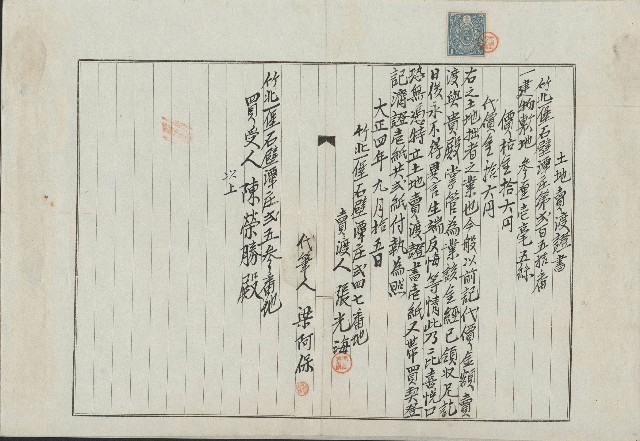 土地賣渡證書
竹北一堡石壁潭庄第貳百五拾番
一建物敷地 參厘壱毫五絲
價格金拾六円
代價金拾六円
右之土地拙者之業也今般以前記代價金額賣
渡與貴殿掌管為業該金經已領収足訖
日後永不得異言生端反悔等情此乃二比喜悦口
恐無憑特立土地賣渡證書壱紙又帶買契登
記濟證壱紙共弍紙付執為照
大正四年九月拾五日
竹北一堡石壁潭庄弍四七番地
賣渡人 張光海
代筆人 梁阿保
竹北一堡石壁潭庄弍五參番地
買受人 陳榮勝殿
以上